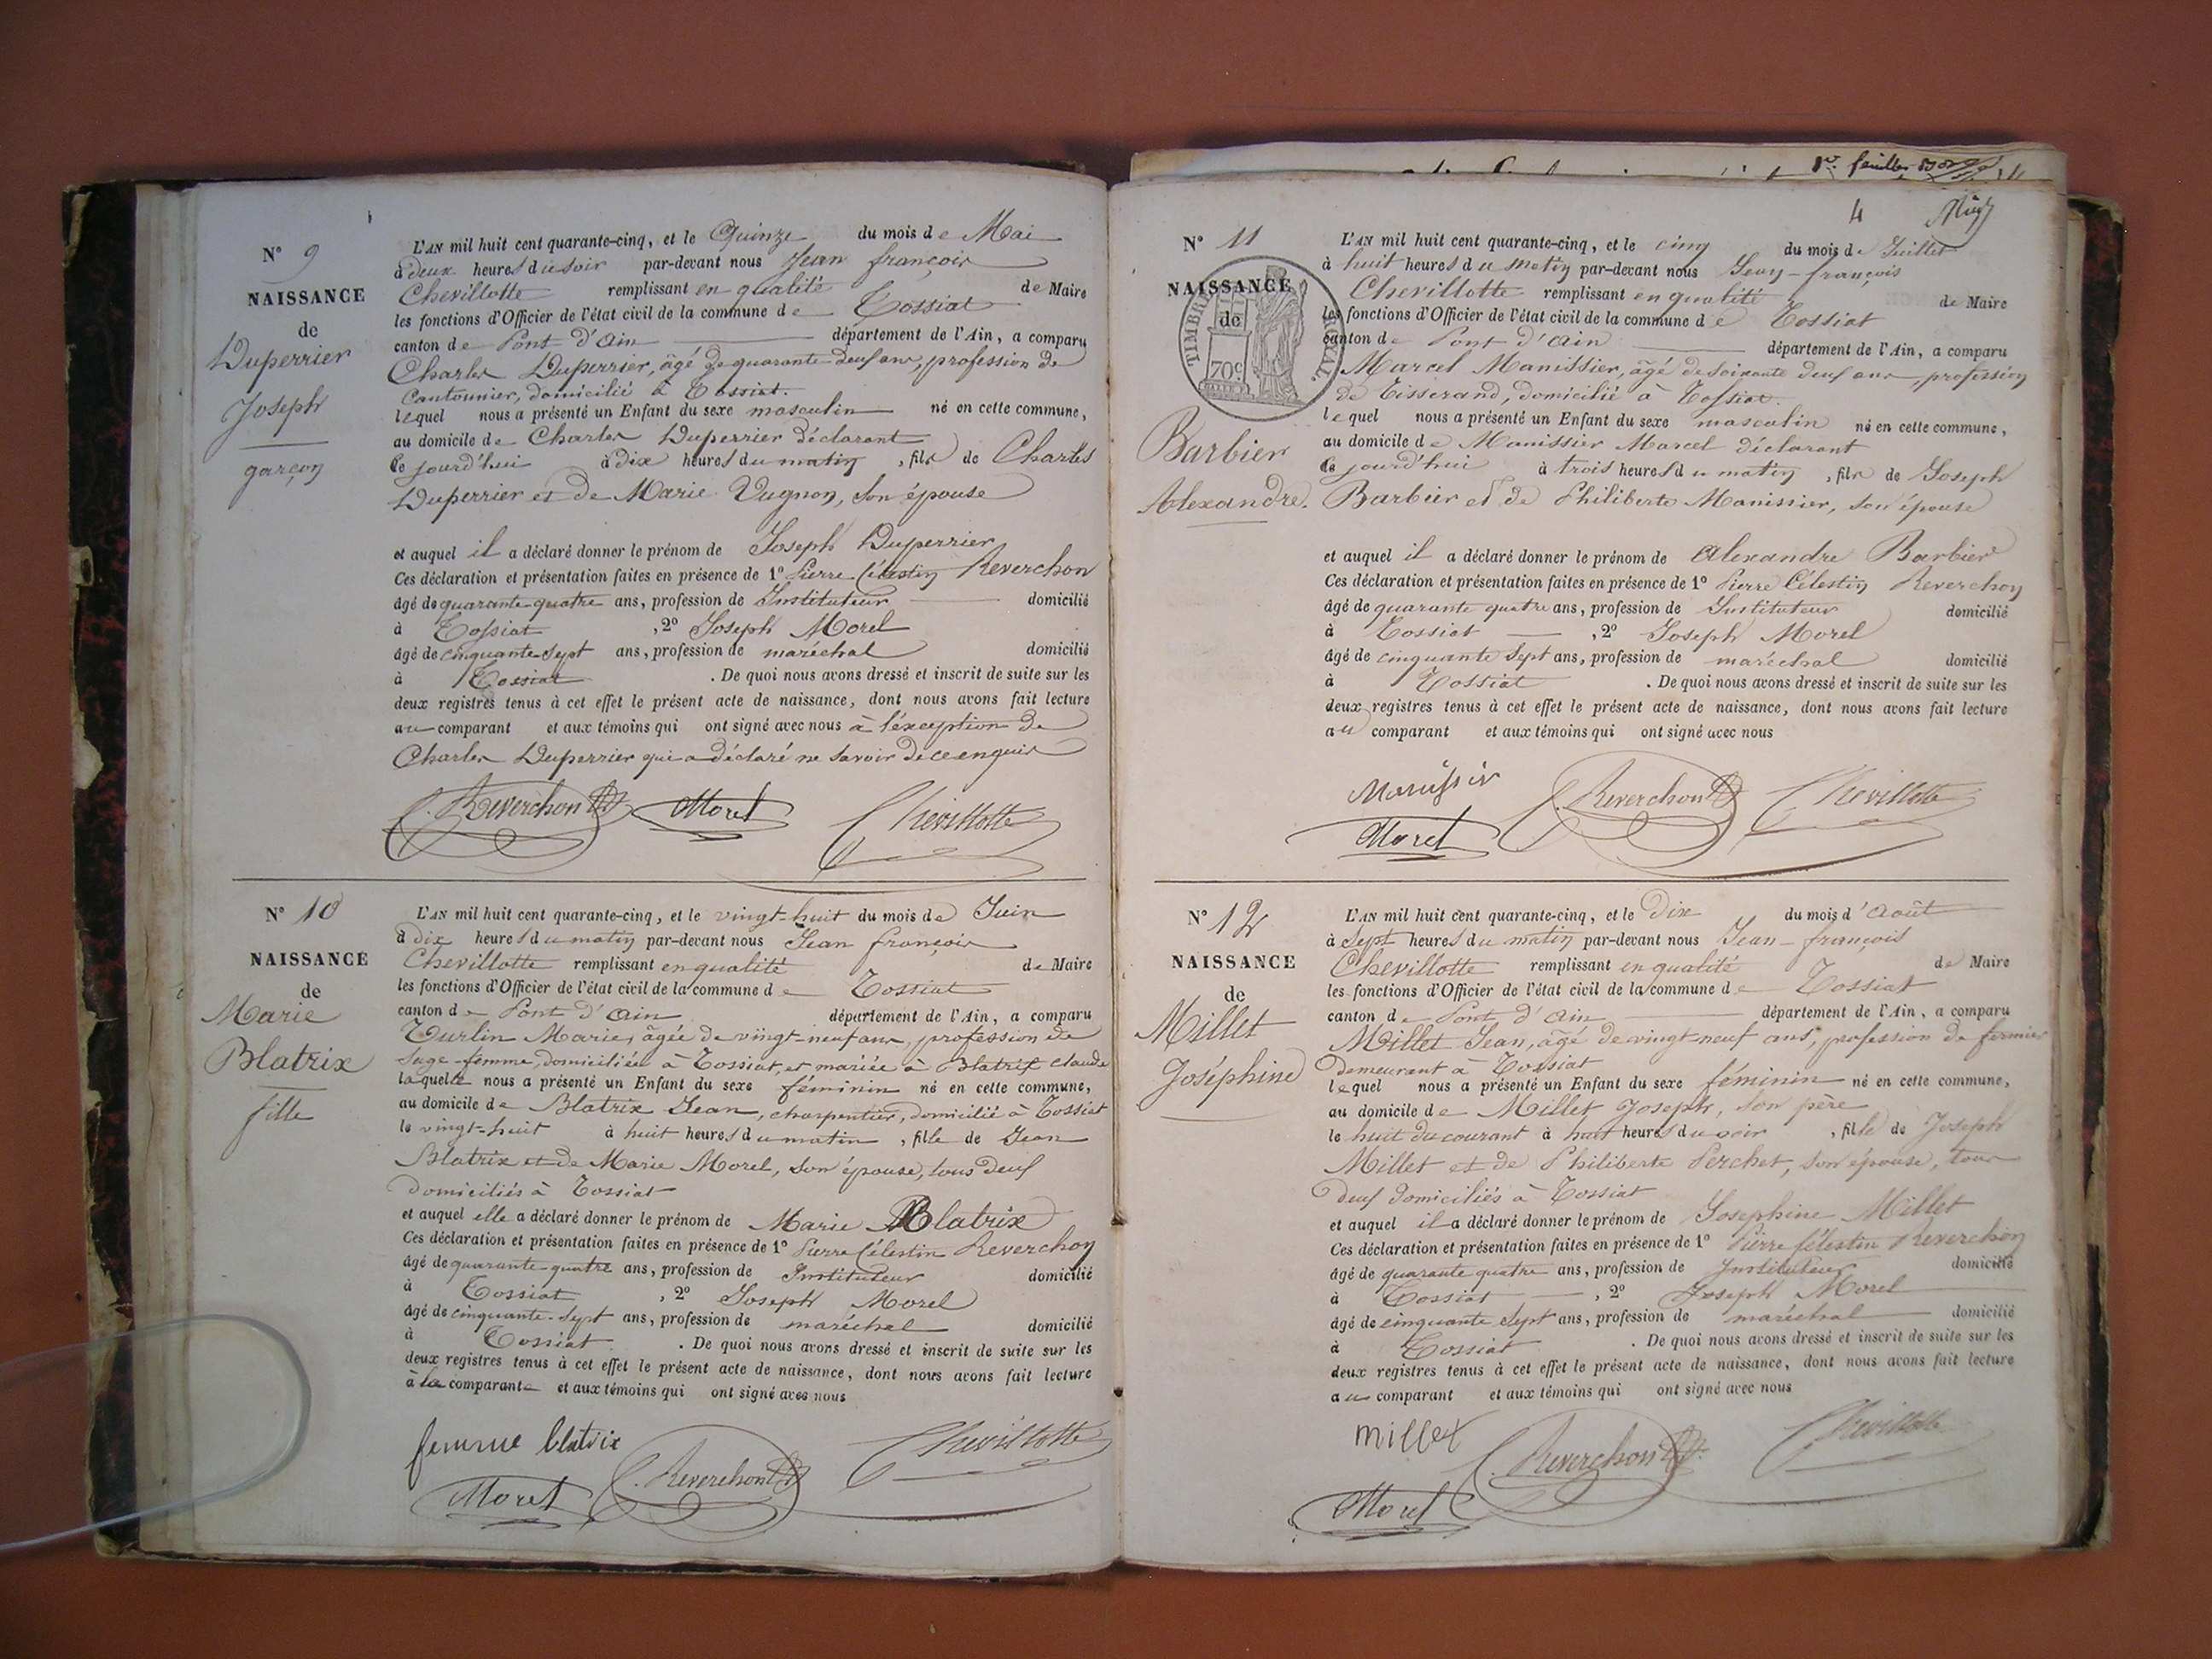 N° 9
NAISSANCE
de
Duperrier
Joseph
garçon
L'AN mil huit cent quarante-cinq, et le Quinze du mois de Mai
à deux heures du soir par-devant nous Jean françois
Chevillotte remplissant en qualité de Maire
les fonctions d'Officier de l'état civil de la commune de Tossiat
canton de Pont d'Ain département de l'Ain, a comparu
Charles Duperrier, âgé de quarante deux ans, profession de
Cantonnier, domicilié à Tossiat.
lequel nous a présenté un Enfant du sexe masculin né en cette commune,
au domicile de Charles Duperrier déclarant
ce jourd'hui à dix heures du matin, fils de Charles
Duperrier et de Marie Vugnon, son épouse
et auquel il a déclaré donner le prénom de Joseph Duperrier
Ces déclaration et présentation faites en présence de 1° Pierre Célestin Reverchon
âgé de quarante-quatre ans, profession de Instituteur domicilié
à Tossiat, 2° Joseph Morel
âgé de cinquante-sept ans, profession de maréchal domicilié
à Tossiat. De quoi nous avons dressé et inscrit de suite sur les
deux registres tenus à cet effet le présent acte de naissance, dont nous avons fait lecture
au comparant et aux témoins qui ont signé avec nous à l'exception de
Charles Duperrier qui a déclaré ne savoir de ce enquis
C. Reverchon Morel Chevillotte
N° 10
NAISSANCE
de
Marie
Blatrix
fille
L'AN mil huit cent quarante-cinq, et le vingt-huit du mois de Juin
à dix heures du matin par-devant nous Jean françois
Chevillotte remplissant en qualité de Maire
les fonctions d'Officier de l'état civil de la commune de Tossiat
canton de Pont d'Ain département de l'Ain, a comparu
Turlin Marie, âgée de vingt-neuf ans, profession de
Sage-femme, domiciliée à Tossiat, et mariée à Blatrix claude
laquelle nous a présenté un Enfant du sexe féminin né en cette commune,
au domicile de Blatrix Jean, charpentier, domicilié à Tossiat
le vingt-huit à huit heures du matin, fille de Jean
Blatrix et de Marie Morel, son épouse, tous deux
domiciliés à Tossiat
et auquel elle a déclaré donner le prénom de Marie Blatrix
Ces déclaration et présentation faites en présence de 1° Pierre Célestin Reverchon
âgé de quarante-quatre ans, profession de Instituteur domicilié
à Tossiat, 2° Joseph Morel
âgé de cinquante-sept ans, profession de maréchal domicilié
à Tossiat. De quoi nous avons dressé et inscrit de suite sur les
deux registres tenus à cet effet le présent acte de naissance, dont nous avons fait lecture
à la comparante et aux témoins qui ont signé avec nous
femme blatrix
Morel C. Reverchon Chevillotte
feuilles
4
N° 11
NAISSANCE
de
TIMBRE ROYAL
70c
Barbier
Alexandre.
L'AN mil huit cent quarante-cinq, et le cinq du mois de Juillet
à huit heures du matin par-devant nous Jean-françois
Chevillotte remplissant en qualité de Maire
les fonctions d'Officier de l'état civil de la commune de Tossiat
canton de Pont d'Ain département de l'Ain, a comparu
Marcel Manissier, âgé de soixante deux ans, profession
de Tisserand, domicilié à Tossiat.
lequel nous a présenté un Enfant du sexe masculin né en cette commune,
au domicile de Manissier Marcel déclarant
ce jourd'hui à trois heures du matin, fils de Joseph
Barbier et de Philiberte Manissier, son épouse
et auquel il a déclaré donner le prénom de Alexandre Barbier
Ces déclaration et présentation faites en présence de 1° Pierre Célestin Reverchon
âgé de quarante quatre ans, profession de Instituteur domicilié
à Tossiat, 2° Joseph Morel
âgé de cinquante sept ans, profession de maréchal domicilié
à Tossiat. De quoi nous avons dressé et inscrit de suite sur les
deux registres tenus à cet effet le présent acte de naissance, dont nous avons fait lecture
au comparant et aux témoins qui ont signé avec nous
Manissier C. Reverchon Chevillotte
Morel
N° 12
NAISSANCE
de
Millet
Joséphine
L'AN mil huit cent quarante-cinq, et le Dix du mois d'Août
à sept heures du matin par-devant nous Jean-françois
Chevillotte remplissant en qualité de Maire
les fonctions d'Officier de l'état civil de la commune de Tossiat
canton de Pont d'Ain département de l'Ain, a comparu
Millet Jean, âgé de vingt neuf ans, profession de fermier
demeurant à Tossiat
lequel nous a présenté un Enfant du sexe féminin né en cette commune,
au domicile de Millet Joseph, son père
le huit du courant à huit heures du soir, fille de Joseph
Millet et de Philiberte Perchet, son épouse, tous
deux domiciliés à Tossiat
et auquel il a déclaré donner le prénom de Josephine Millet
Ces déclaration et présentation faites en présence de 1° Pierre Célestin Reverchon
âgé de quarante quatre ans, profession de Instituteur domicilié
à Tossiat, 2° Joseph Morel
âgé de cinquante sept ans, profession de maréchal domicilié
à Tossiat. De quoi nous avons dressé et inscrit de suite sur les
deux registres tenus à cet effet le présent acte de naissance, dont nous avons fait lecture
au comparant et aux témoins qui ont signé avec nous
millet C. Reverchon Chevillotte
Morel